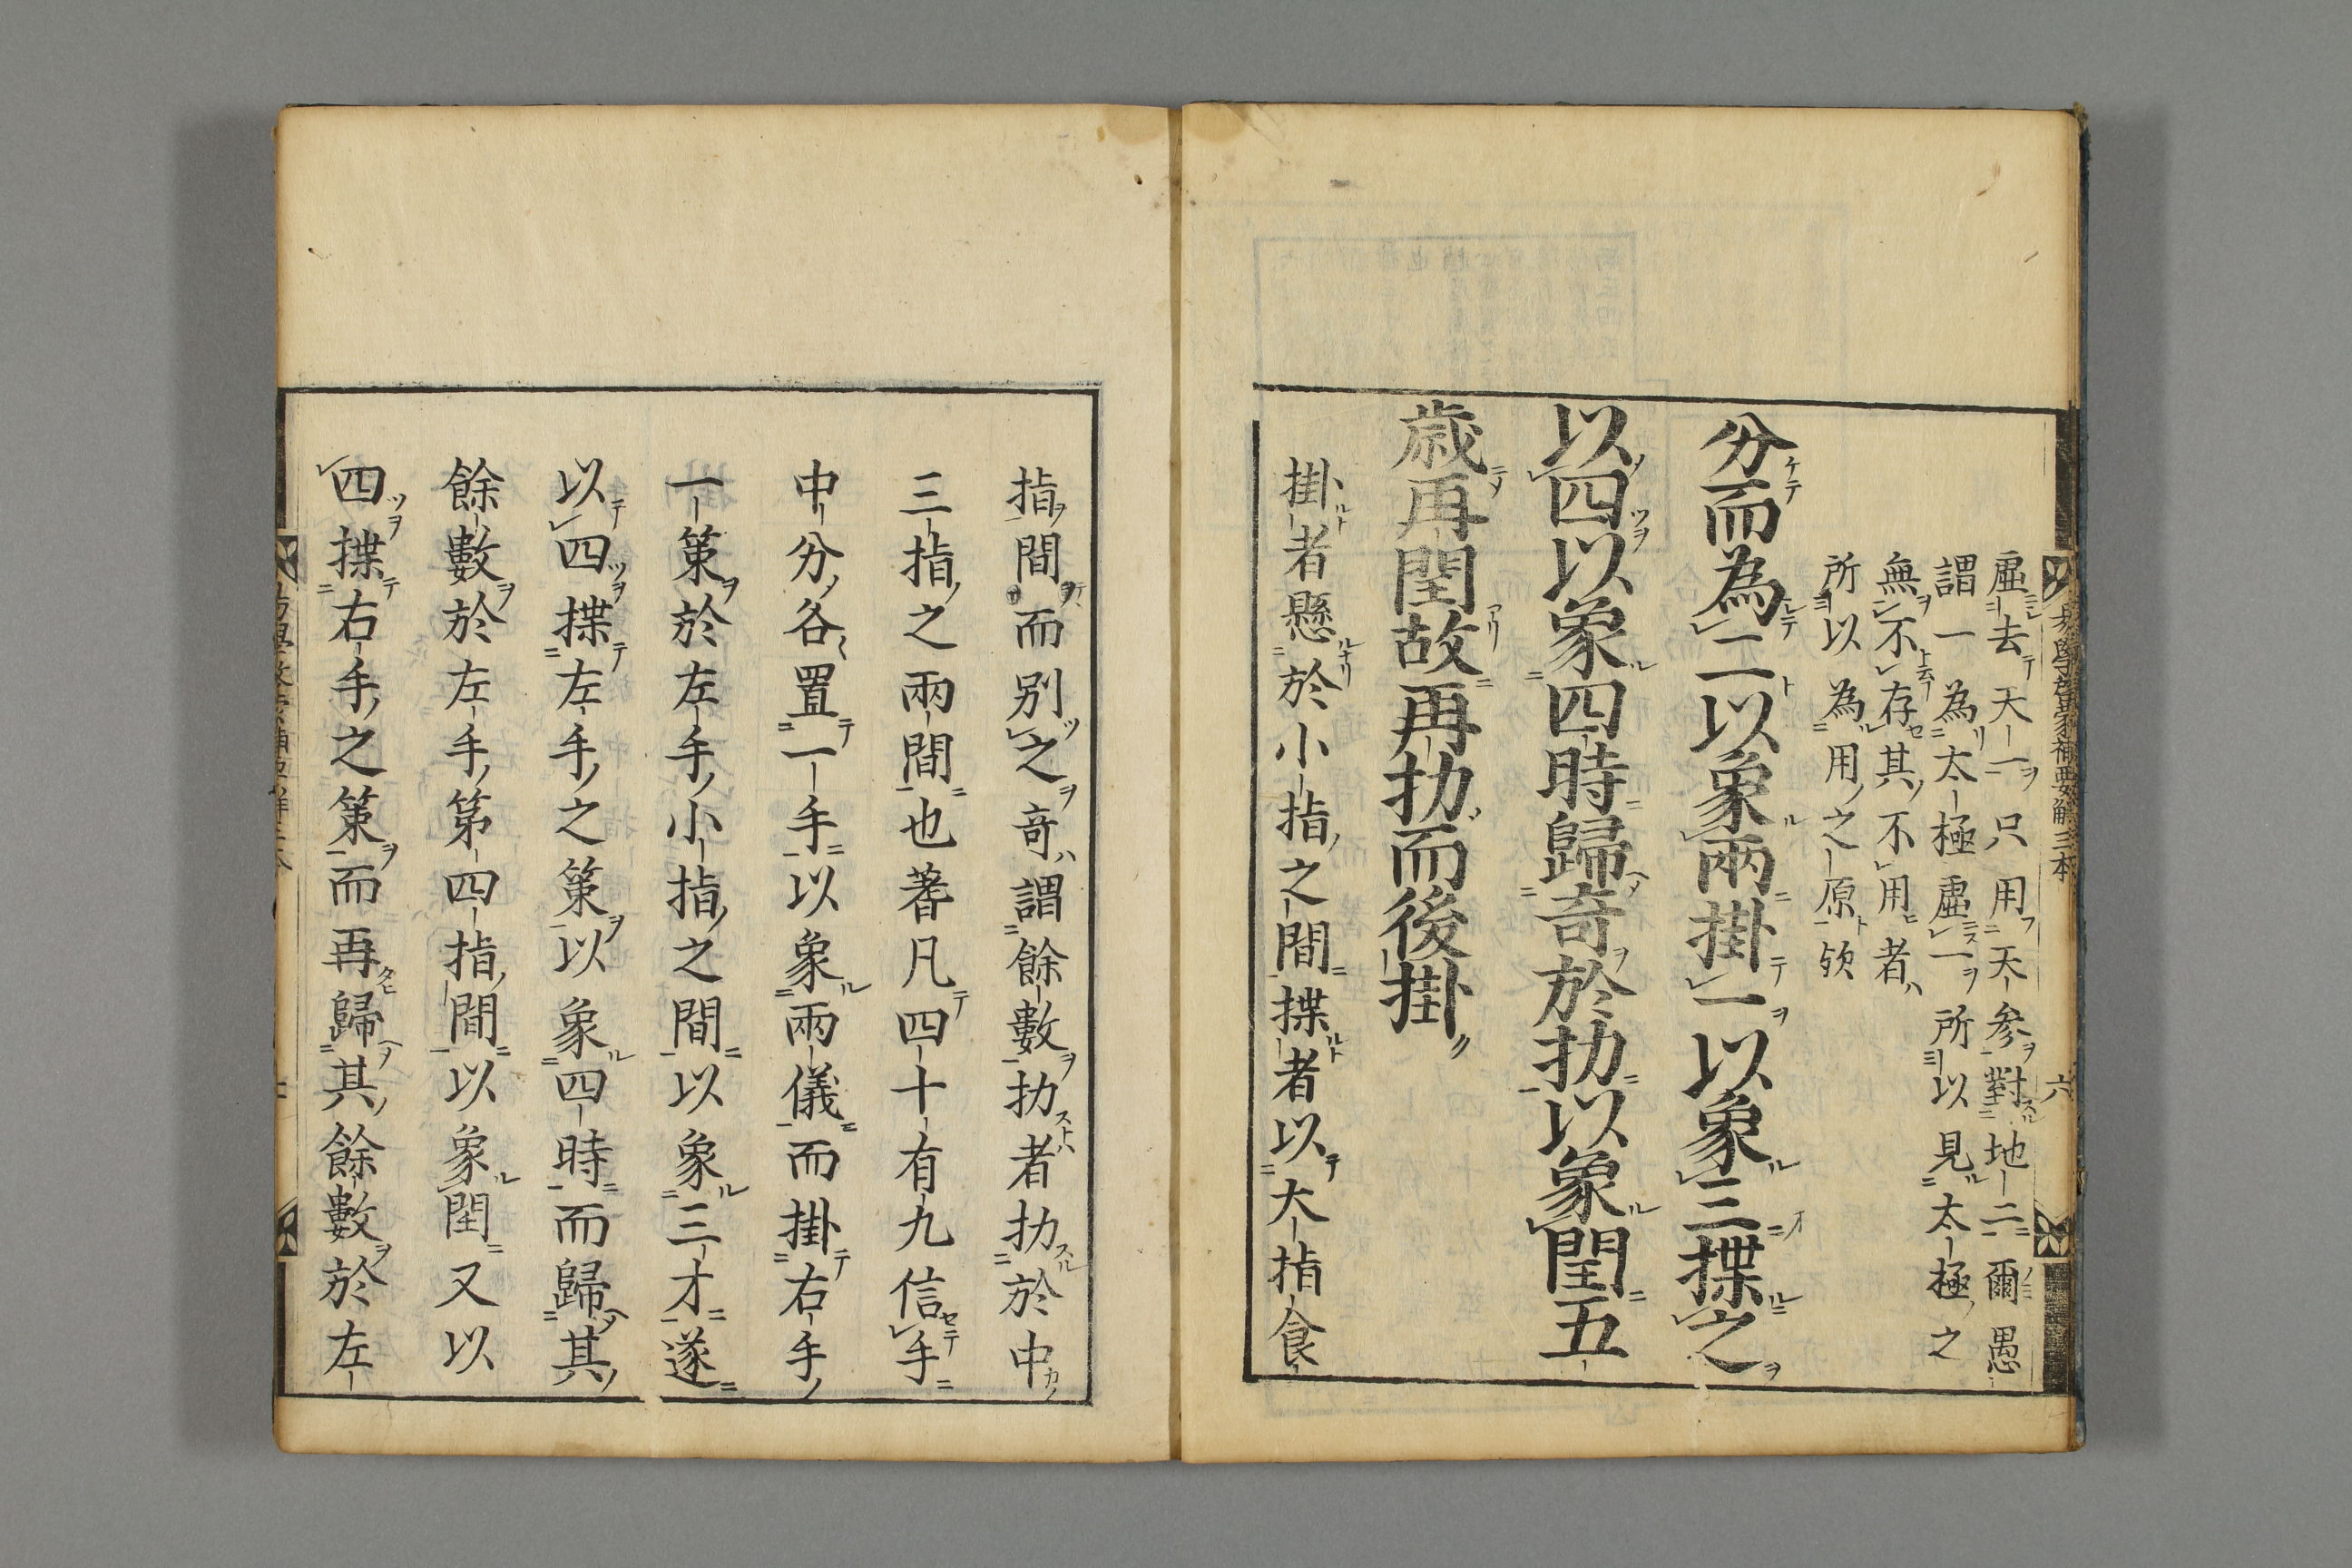 易學啓蒙補要解三本 六
虛去天一只用天參對地二爾愚
謂一為太極虛一所以見太極之
無不存其不用者
所以為用之原欤
分而為二以象兩掛一以象三揲之
以四以象四時歸奇於扐以象閏五
歲再閏故再扐而後掛
掛者懸於小指之間揲者以大指食
指間而別之奇謂餘數扐者扐於中
三指之兩間也蓍凡四十有九信手
中分各置一手以象兩儀而掛右手
一策於左手小指之間以象三才遂
以四揲左手之策以象四時而歸其
餘數於左手第四指間以象閏又以
四揲右手之策而再歸其餘數於左